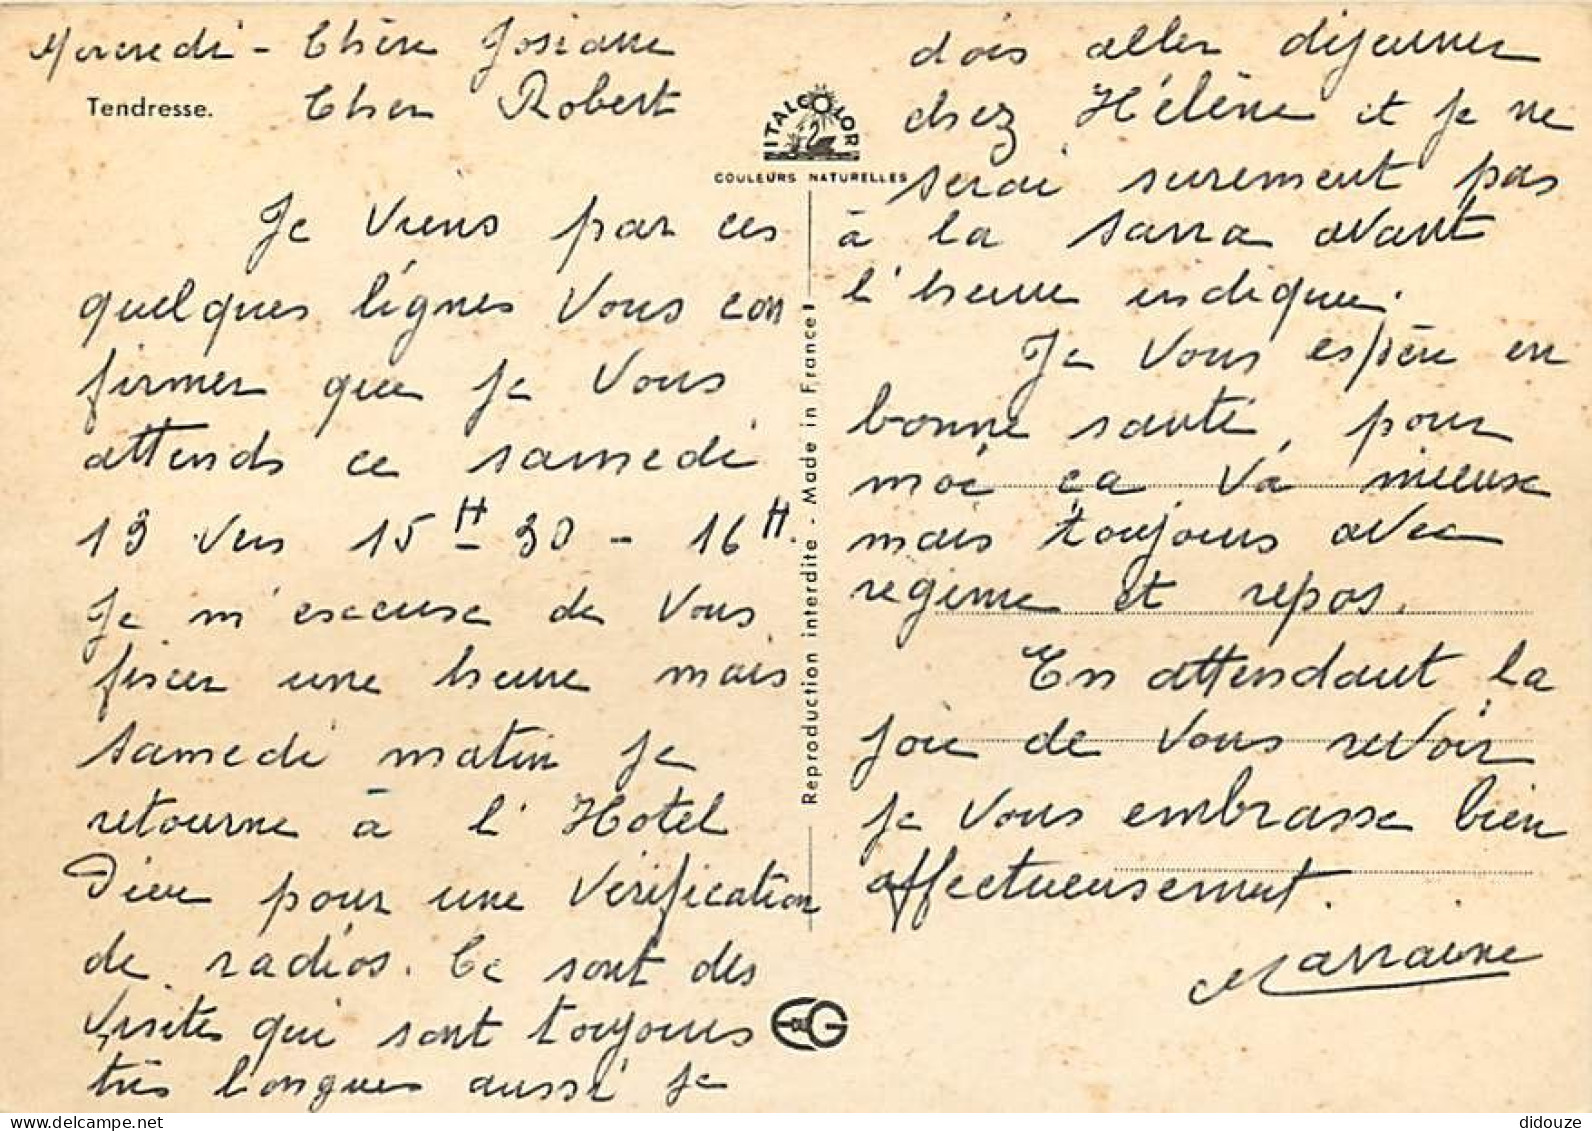 Mercredi - Chère Josiane
Tendresse. Cher Robert
Je viens par ces
quelques lignes vous con
firmer que je vous
attends ce samedi
13 vers 15 H 30 - 16 H.
Je m'excuse de vous
fixer une heure mais
samedi matin je
retourne à l'Hotel
Dieu pour une vérification
de radios. Ce sont des
visites qui sont toujours
très longues aussi je
ITALCOLOR
COULEURS NATURELLES
Reproduction interdite - Made in France
EDUG
dois aller déjeuner
chez Hélène et je ne
serai surement pas
à la
avant
l'heure indiquée.
Je vous espère en
bonne santé, pour
moi ça va mieux
mais toujours avec
regime et repos.
En attendant la
joie de vous revoir
je vous embrasse bien
affectueusement.
Marraine
delcampe.net
didouze